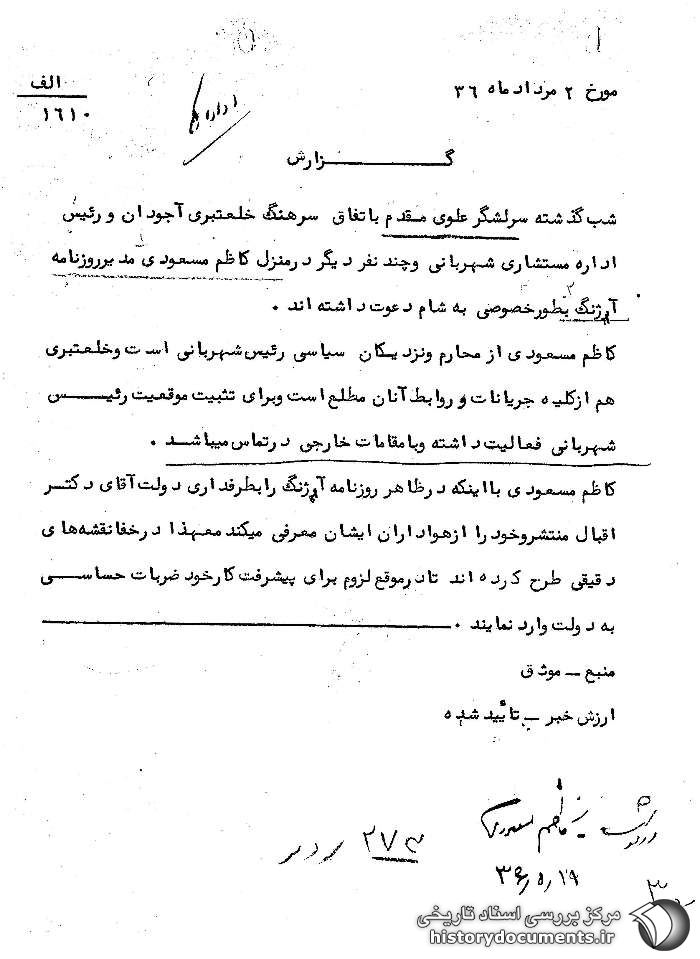 الف
۱۶۱۰
مورخ ۲ مرداد ماه ۳۶
اداره
گزارش
شب گذشته سرلشگر علوی مقدم باتفاق سرهنگ خلعتبری آجودان و رئیس
اداره مستشاری شهربانی وچند نفر دیگر درمنزل کاظم مسعودی مدیرروزنامه
آژنگ بطورخصوصی به شام دعوت داشته اند .
کاظم مسعودی از محارم ونزدیکان سیاسی رئیس شهربانی است وخلعتبری
هم ازکلیه جریانات و روابط آنان مطلع است وبرای تثبیت موقعیت رئیس
شهربانی فعالیت داشته وبامقامات خارجی درتماس میباشد .
کاظم مسعودی بااینکه درظاهر روزنامه آژنگ رابطرفداری دولت آقای دکتر
اقبال منتشروخود را ازهواداران ایشان معرفی میکند معهذا درخفانقشه های
دقیقی طرح کرده اند تادرموقع لزوم برای پیشرفت کارخود ضربات حساسی
به دولت وارد نمایند .
منبع ـ موثق
ارزش خبر ـ تأیید شده
کاظم مسعودی
۲۷۳
۳۶/۵/۱۹
۳
مرکز بررسی اسناد تاریخی
historydocuments.ir